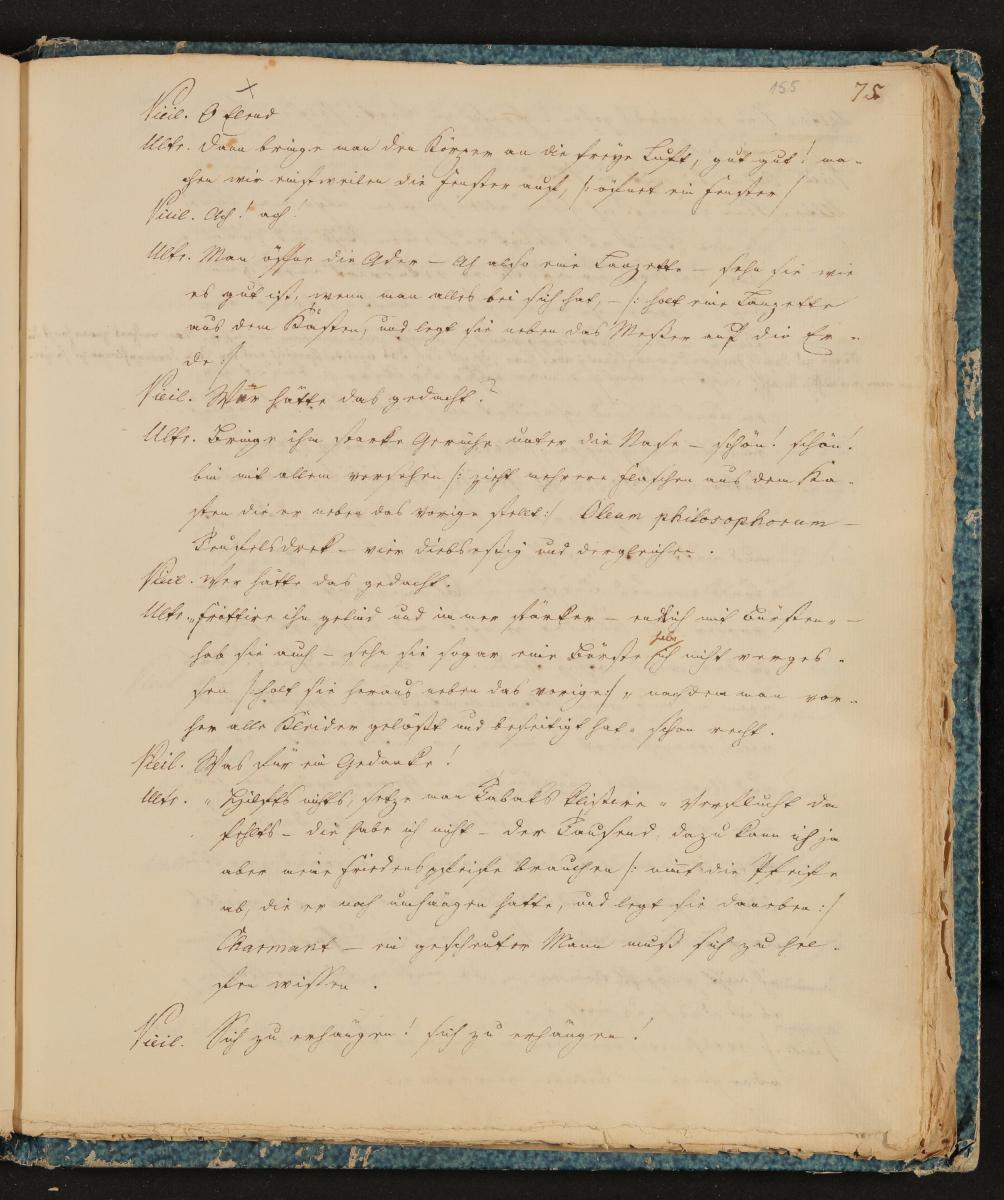 155 75
Vicil. O Elend
Ultr. Dann bringe man den Körper an die freye Luft, gut gut! ma-
chen wir einstweilen die Fenster auf, /: öfnet ein Fenster /
Vicil. Ach! ach!
Ultr. Man öffne die Ader – Ah also eine Lanzette – sehn sie wie
es gut ist, wenn man alles bei sich hat, – /: holt eine Lanzette
aus dem Kasten, und legt sie neben das Messer auf die Er-
de :/
Vicil. Wer hätte das gedacht?
Ultr. Bringe ihm starke Gerüche unter die Nase – schön! schön!
bin mit allem versehen /: zieht mehrere Flaschen aus dem Ka-
sten die er neben das vorige stellt :/ Oleum philosophorum –
Teufelsdrek – vier Diebsessig und dergleichen.
Vicil. Wer hätte das gedacht.
Ultr. „Frottire ihn gelind und immer stärker – endlich mit Bürsten„ –
hab sie auch – sehn sie sogar eine Bürste hab ich nicht verges-
sen /: holt sie heraus neben das vorige :/ „ nachdem man vor-
her alle Kleider gelößt und beseitigt hat„ schon recht.
Vicil. Was für ein Gedanke!
Ultr. „ Hilfts nichts, setze man Tabaks klistire „ Verflucht da
fehlts – die habe ich nicht – der Tausend, dazu kann ich ja
aber meine Friedenspfeife brauchen /: nimt die Pfeife
ab, die er noch umhängen hatte, und legt sie daneben :/
Charmant – ein gescheuter Mann muß sich zu hel-
fen wissen.
Vicil. Sich zu erhängen! sich zu erhängen!